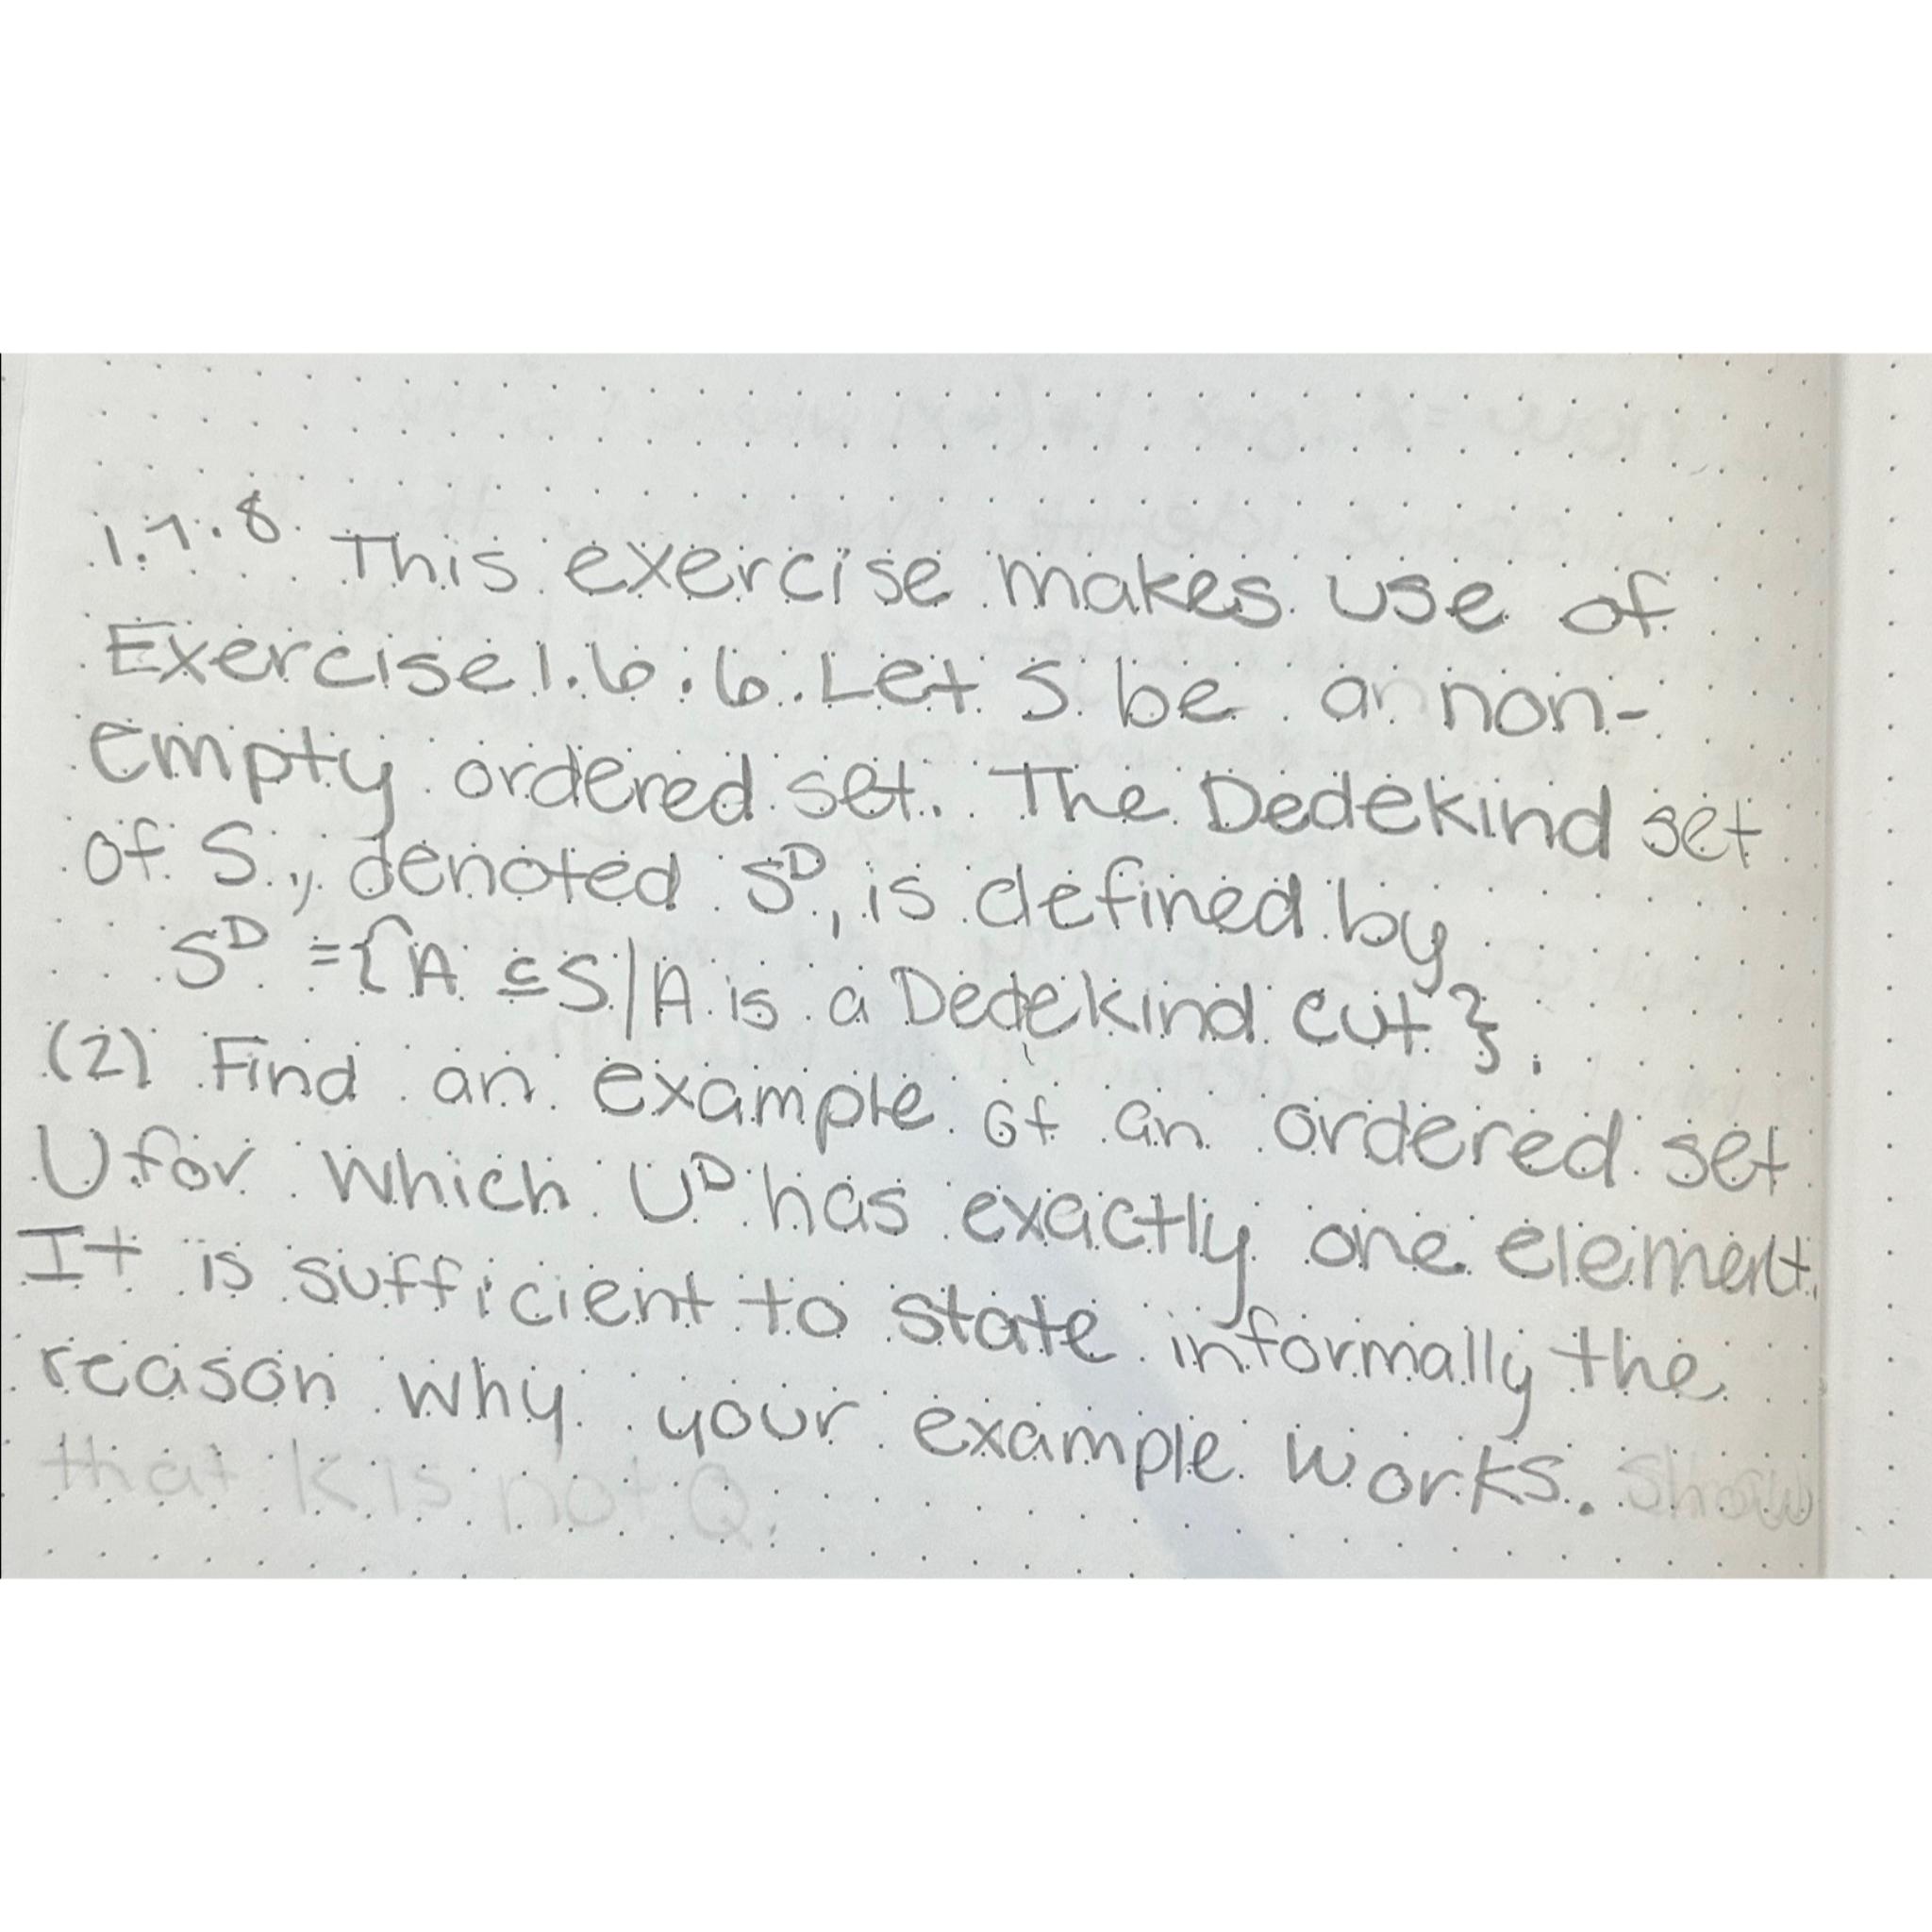 1.7.8. This exercise makes use of
Exercise 1.6.6. Let S be a non-
empty ordered set. The Dedekind set
of S, denoted S^D, is defined by
S^D = {A ⊆ S | A is a Dedekind cut}.
(2) Find an example of an ordered set
U for which U^D has exactly one element.
It is sufficient to state informally the
reason why your example works. Show
that K is not Q.